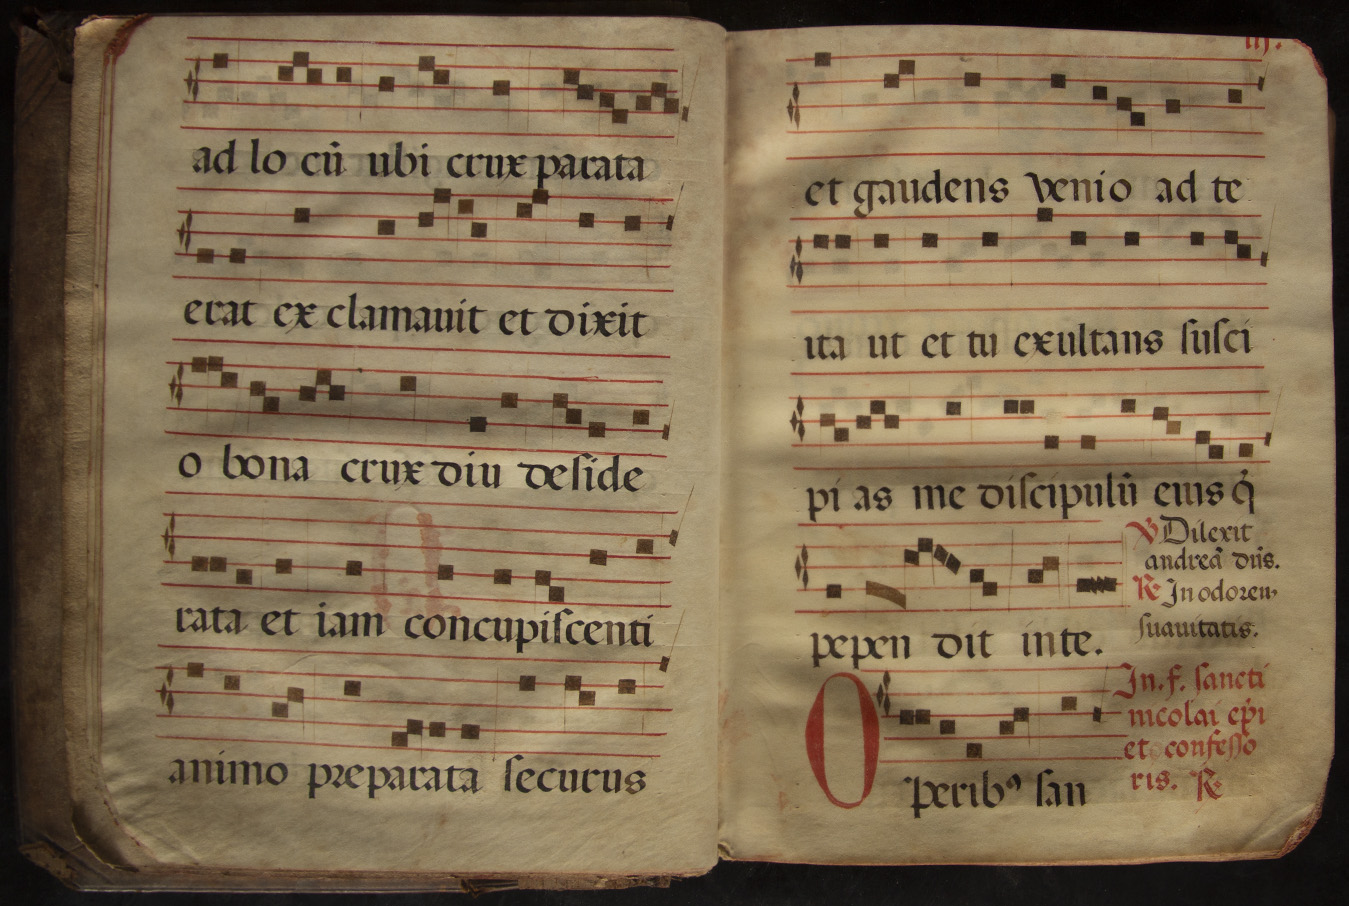 ad lo cū ubi crux parata
erat ex clamauit et dixit
o bona crux diu deside
rata et iam concupiscenti
animo preparata securus
iij.
et gaudens venio ad te
ita ut et tu exultans suſci
pi as me diſcipulū eius q̇
℣ Dilexit
andreā dn̄s.
pepen dit inte.
℟ In odorem
suauitatis.
In. f. sancti
nicolai ep̄i
et confeſſo
ris. ℟
O peribꝰ san